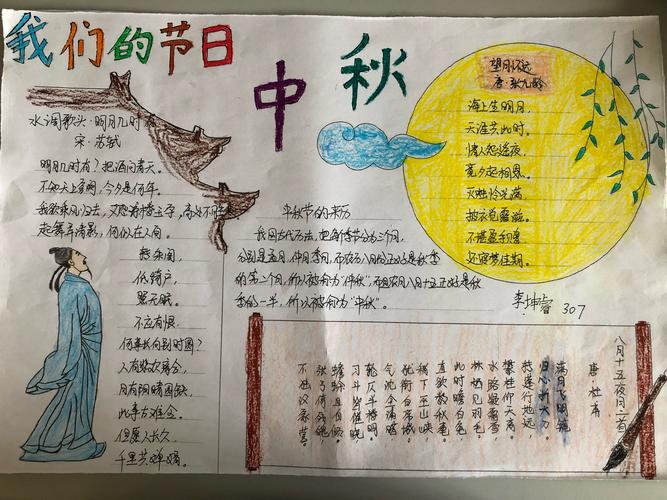 我们的节日
中秋
水调歌头·明月几时有
宋·苏轼
明月几时有?把酒问青天。
不知天上宫阙,今夕是何年。
我欲乘风归去,又恐琼楼玉宇,高处不胜
起舞弄清影,何似在人间。
转朱阁,
低绮户,
照无眠。
不应有恨,
何事长向别时圆?
人有悲欢离合,
月有阴晴圆缺,
此事古难全。
但愿人长久,
千里共婵娟。
中秋节的来历
我国古代历法,把每个季节分为三个月,
分别是孟月、仲月、季月,而农历八月份正好是秋季
的第二个月,所以被称为“仲秋”,而且农历八月十五正好是秋
季的一半,所以被称为“中秋”。
望月怀远
唐·张九龄
海上生明月,
天涯共此时。
情人怨遥夜,
竟夕起相思。
灭烛怜光满,
披衣觉露滋。
不堪盈手赠,
还寝梦佳期。
李坤睿 307
八月十五夜月二首
唐·杜甫
满月飞明镜,
归心折大刀。
转蓬行地远,
攀桂仰天高。
水路疑霜雪,
林栖见羽毛。
此时瞻白兔,
直欲数秋毫。
稍下巫山峡,
犹衔白帝城。
气沈全浦暗,
轮仄半楼明。
刁斗皆催晓,
蟾蜍且自倾。
张弓倚残魄,
不独汉家营。